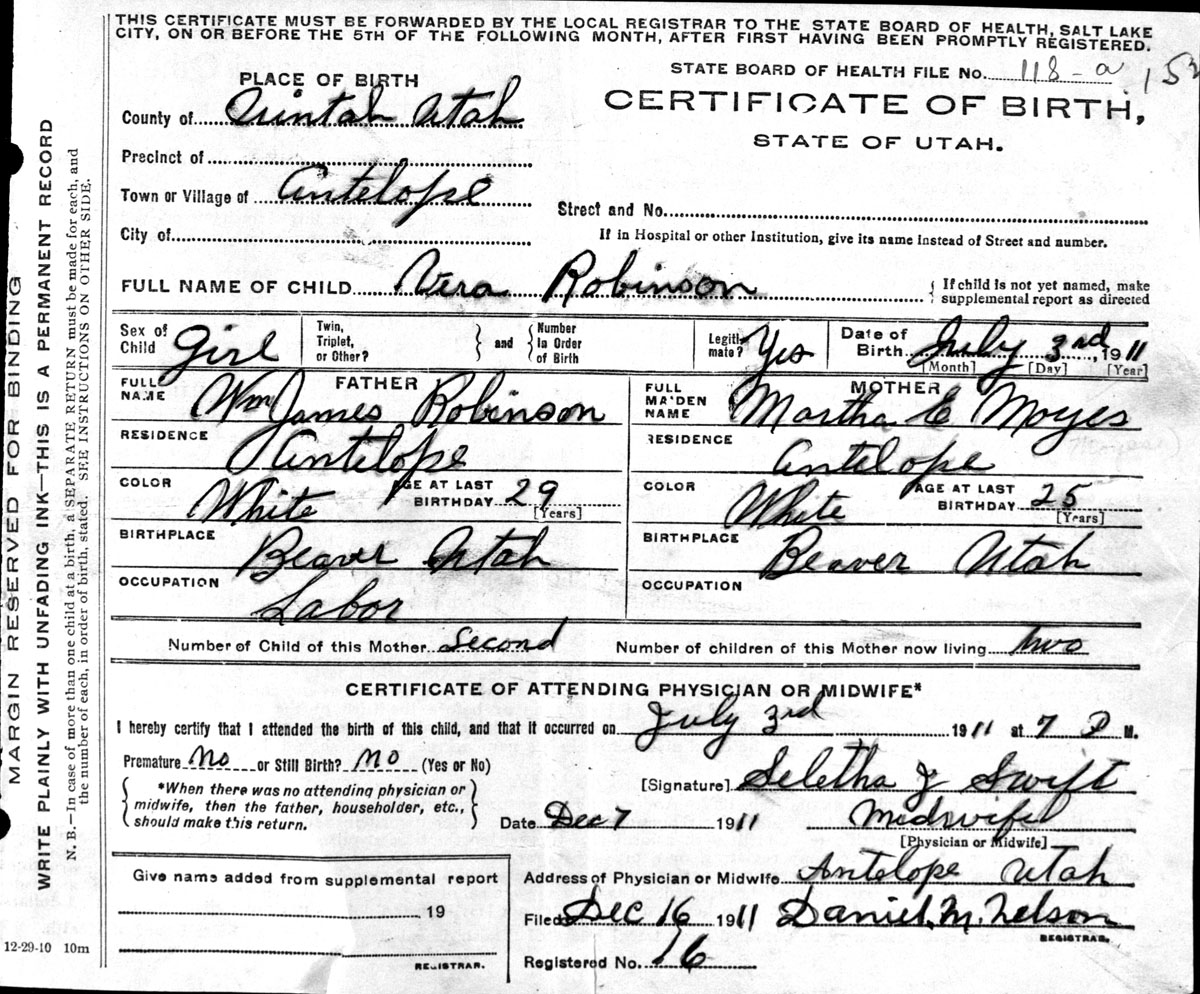 THIS CERTIFICATE MUST BE FORWARDED BY THE LOCAL REGISTRAR TO THE STATE BOARD OF HEALTH, SALT LAKE
CITY, ON OR BEFORE THE 5TH OF THE FOLLOWING MONTH, AFTER FIRST HAVING BEEN PROMPTLY REGISTERED.
STATE BOARD OF HEALTH FILE No. 118-a 153
PLACE OF BIRTH
CERTIFICATE OF BIRTH,
STATE OF UTAH.
County of Uintah Utah
Precinct of
Town or Village of Antelope
Street and No.
City of
If in Hospital or other Institution, give its name instead of Street and number.
FULL NAME OF CHILD Vera Robinson
{ If child is not yet named, make
supplemental report as directed
Sex of Child Girl
Twin, Triplet, or Other? } and { Number In Order of Birth
Legitimate? Yes
Date of Birth July 3rd, 1911
[Month] [Day] [Year]
FATHER
FULL NAME Wm James Robinson
RESIDENCE Antelope
COLOR White AGE AT LAST BIRTHDAY 29 [Years]
BIRTHPLACE Beaver Utah
OCCUPATION Labor
MOTHER
FULL MAIDEN NAME Martha E Moyes
RESIDENCE Antelope
COLOR White AGE AT LAST BIRTHDAY 25 [Years]
BIRTHPLACE Beaver Utah
OCCUPATION
Number of Child of this Mother Second
Number of children of this Mother now living two
CERTIFICATE OF ATTENDING PHYSICIAN OR MIDWIFE*
I hereby certify that I attended the birth of this child, and that it occurred on July 3rd 1911 at 7 P M.
Premature No or Still Birth? No (Yes or No)
{ *When there was no attending physician or
midwife, then the father, householder, etc.,
should make this return. }
[Signature] Seletha J Swift
Date Dec 7 1911 Midwife
[Physician or Midwife]
Give name added from supplemental report
19
REGISTRAR.
Address of Physician or Midwife. Antelope Utah
Filed Dec 16 1911 Daniel. M. Nelson
REGISTRAR.
Registered No. 16
12-29-10 10m
MARGIN RESERVED FOR BINDING
WRITE PLAINLY WITH UNFADING INK—THIS IS A PERMANENT RECORD
N. B.—In case of more than one child at a birth, a SEPARATE RETURN must be made for each, and
the number of each, in order of birth, stated. SEE INSTRUCTIONS ON OTHER SIDE.